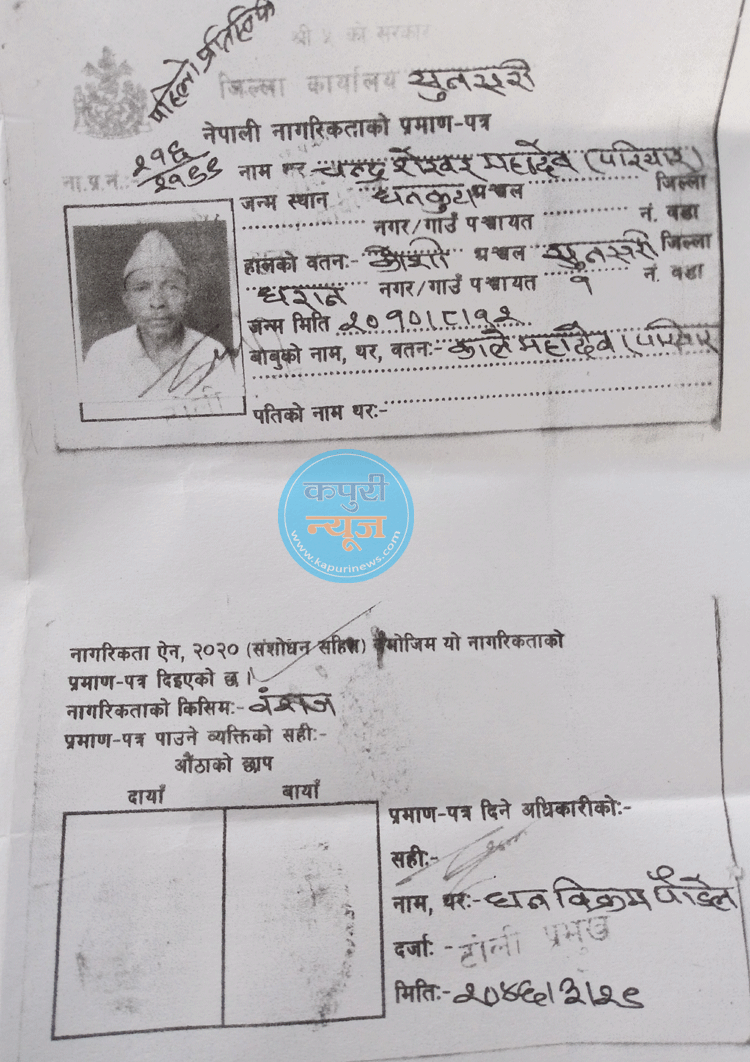 पहिलो प्रतिलिपि
श्री ५ को सरकार
जिल्ला कार्यालय सुनसरी
नेपाली नागरिकताको प्रमाण-पत्र
ना.प्र.नं.:-
नाम थर चन्द्र शेखर महादेव (परियार)
जन्म स्थान धनकुटा अञ्चल जिल्ला
नगर/गाउँ पञ्चायत नं. वडा
हालको वतन:- कोशी अञ्चल सुनसरी जिल्ला
धरान नगर/गाउँ पञ्चायत १ नं. वडा
जन्म मिति २०१०।८।१२
बाबुको नाम, थर, वतन:- काले महादेव (परियार
पतिको नाम थर:-
कपुरी
न्यूज
www.kapurinews.com
नागरिकता ऐन, २०२० (संशोधन सहित) बमोजिम यो नागरिकताको
प्रमाण-पत्र दिइएको छ।
नागरिकताको किसिम:- वंशज
प्रमाण-पत्र पाउने व्यक्तिको सही:-
औंठाको छाप
दायाँ बायाँ
प्रमाण-पत्र दिने अधिकारीको:-
सही:-
नाम, थर:- धन विक्रम पौडेल
दर्जा:- टोली प्रमुख
मिति:- २०४६।३।२९